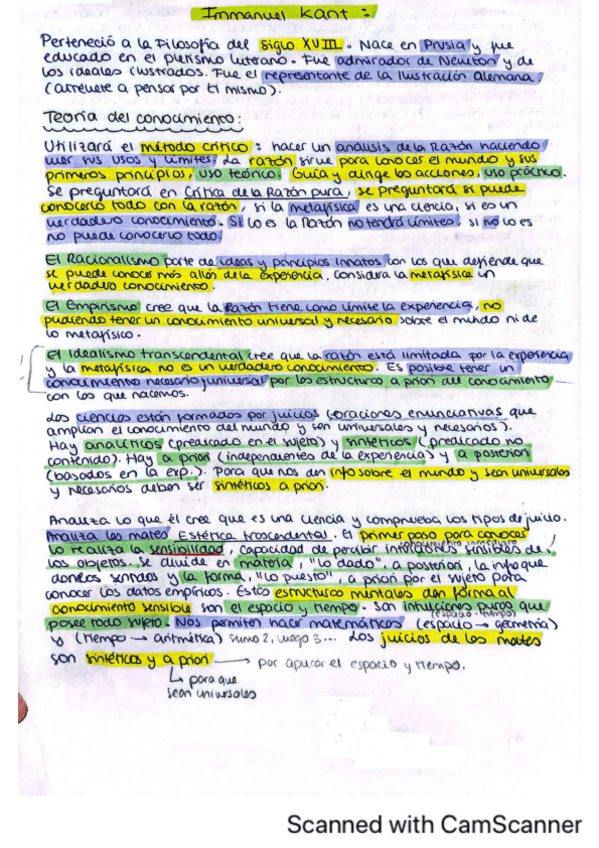 Immanuel Kant:
Perteneció a la Filosofía del siglo XVIII. Nace en Prusia y fue
educado en el pietismo luterano. Fue admirador de Newton y de
los ideales ilustrados. Fue el representante de la Ilustración Alemana
(atrévete a pensar por ti mismo).
Teoría del conocimiento:
Utilizará el método crítico: hacer un análisis de la Razón haciendo
ver sus usos y límites. La razón sirve para conocer el mundo y sus
primeros principios, uso teórico. Guía y dirige las acciones, uso práctico.
Se preguntará en Crítica de la Razón pura, se preguntará si puede
conocerlo todo con la razón, si la metafísica es una ciencia, si es un
verdadero conocimiento. Si lo es la Razón no tendrá límites, si no lo es
no puede conocerlo todo.
El Racionalismo parte de ideas y principios innatos con los que defiende que
se puede conocer más allá de la experiencia, considera la metafísica un
verdadero conocimiento.
El Empirismo cree que la Razón tiene como límite la experiencia, no
pudiendo tener un conocimiento universal y necesario sobre el mundo ni de
lo metafísico.
El Idealismo transcendental cree que la razón está limitada por la experiencia
y la metafísica no es un verdadero conocimiento. Es posible tener un
conocimiento necesario y universal por las estructuras a priori del conocimiento
con las que nacemos.
Las ciencias están formadas por juicios (oraciones enunciativas que
amplían el conocimiento del mundo y son universales y necesarios).
Hay analíticos (predicado en el sujeto) y sintéticos (predicado no
contenido). Hay a priori (independientes de la experiencia) y a posteriori
(basados en la exp.). Para que nos den info sobre el mundo y sean universales
y necesarios deben ser sintéticos a priori.
Analiza lo que él cree que es una ciencia y comprueba los tipos de juicio.
Analiza las mates Estética trascendental. El primer paso para conocer
lo realiza la sensibilidad, capacidad de percibir intuiciones sensibles de
los objetos. Se divide en materia, "lo dado", a posteriori, la info que
dan los sentidos y la forma, "lo puesto", a priori por el sujeto para
conocer los datos empíricos. Estas estructuras mentales dan forma al
conocimiento sensible son el espacio y tiempo. Son intuiciones puras que
(espacio-tiempo)
posee todo sujeto. Nos permiten hacer matemáticas (espacio → geometría)
y (tiempo → aritmética) sumo 2, luego 3... Los juicios de las mates
son sintéticos y a priori → por aplicar el espacio y tiempo.
↳ para que
sean universales
Scanned with CamScanner